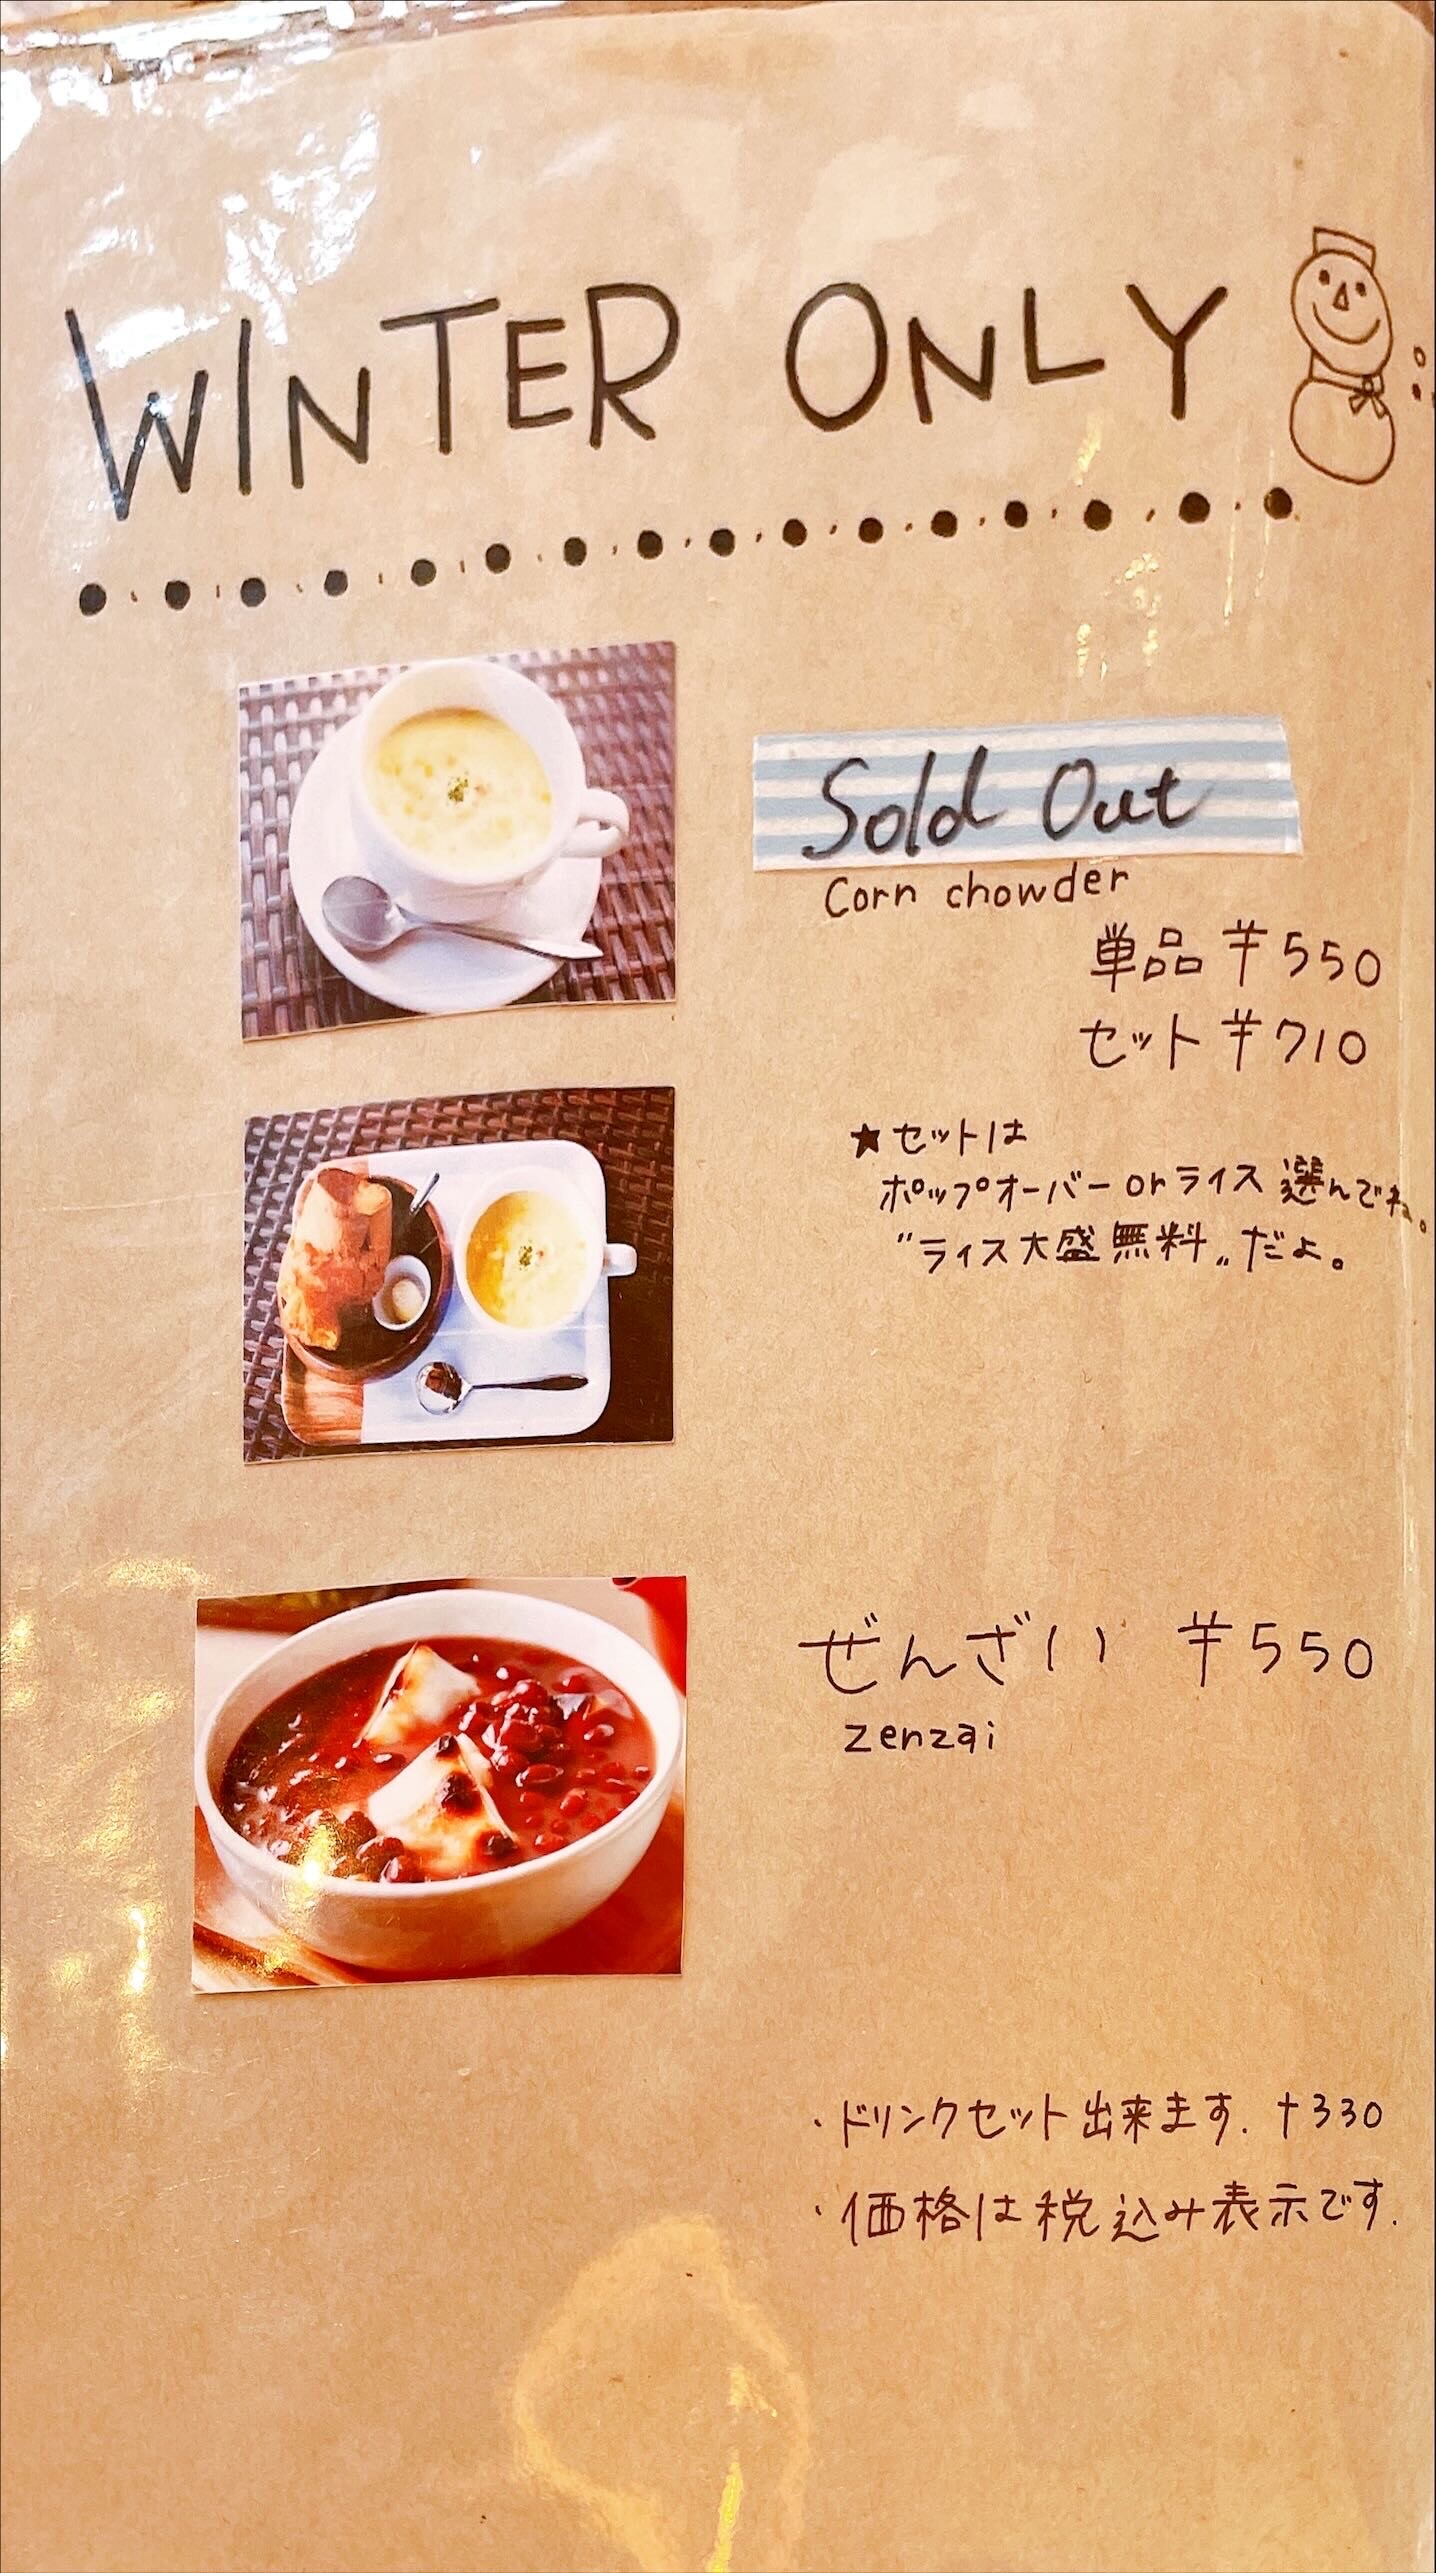 WINTER ONLY
Sold Out
Corn chowder
単品 ¥550
セット ¥710
★セットは
ポップオーバー or ライス 選んでね。
〝ライス大盛無料〟だよ。
ぜんざい ¥550
zenzai
・ドリンクセット出来ます. +330
・価格は税込み表示です.